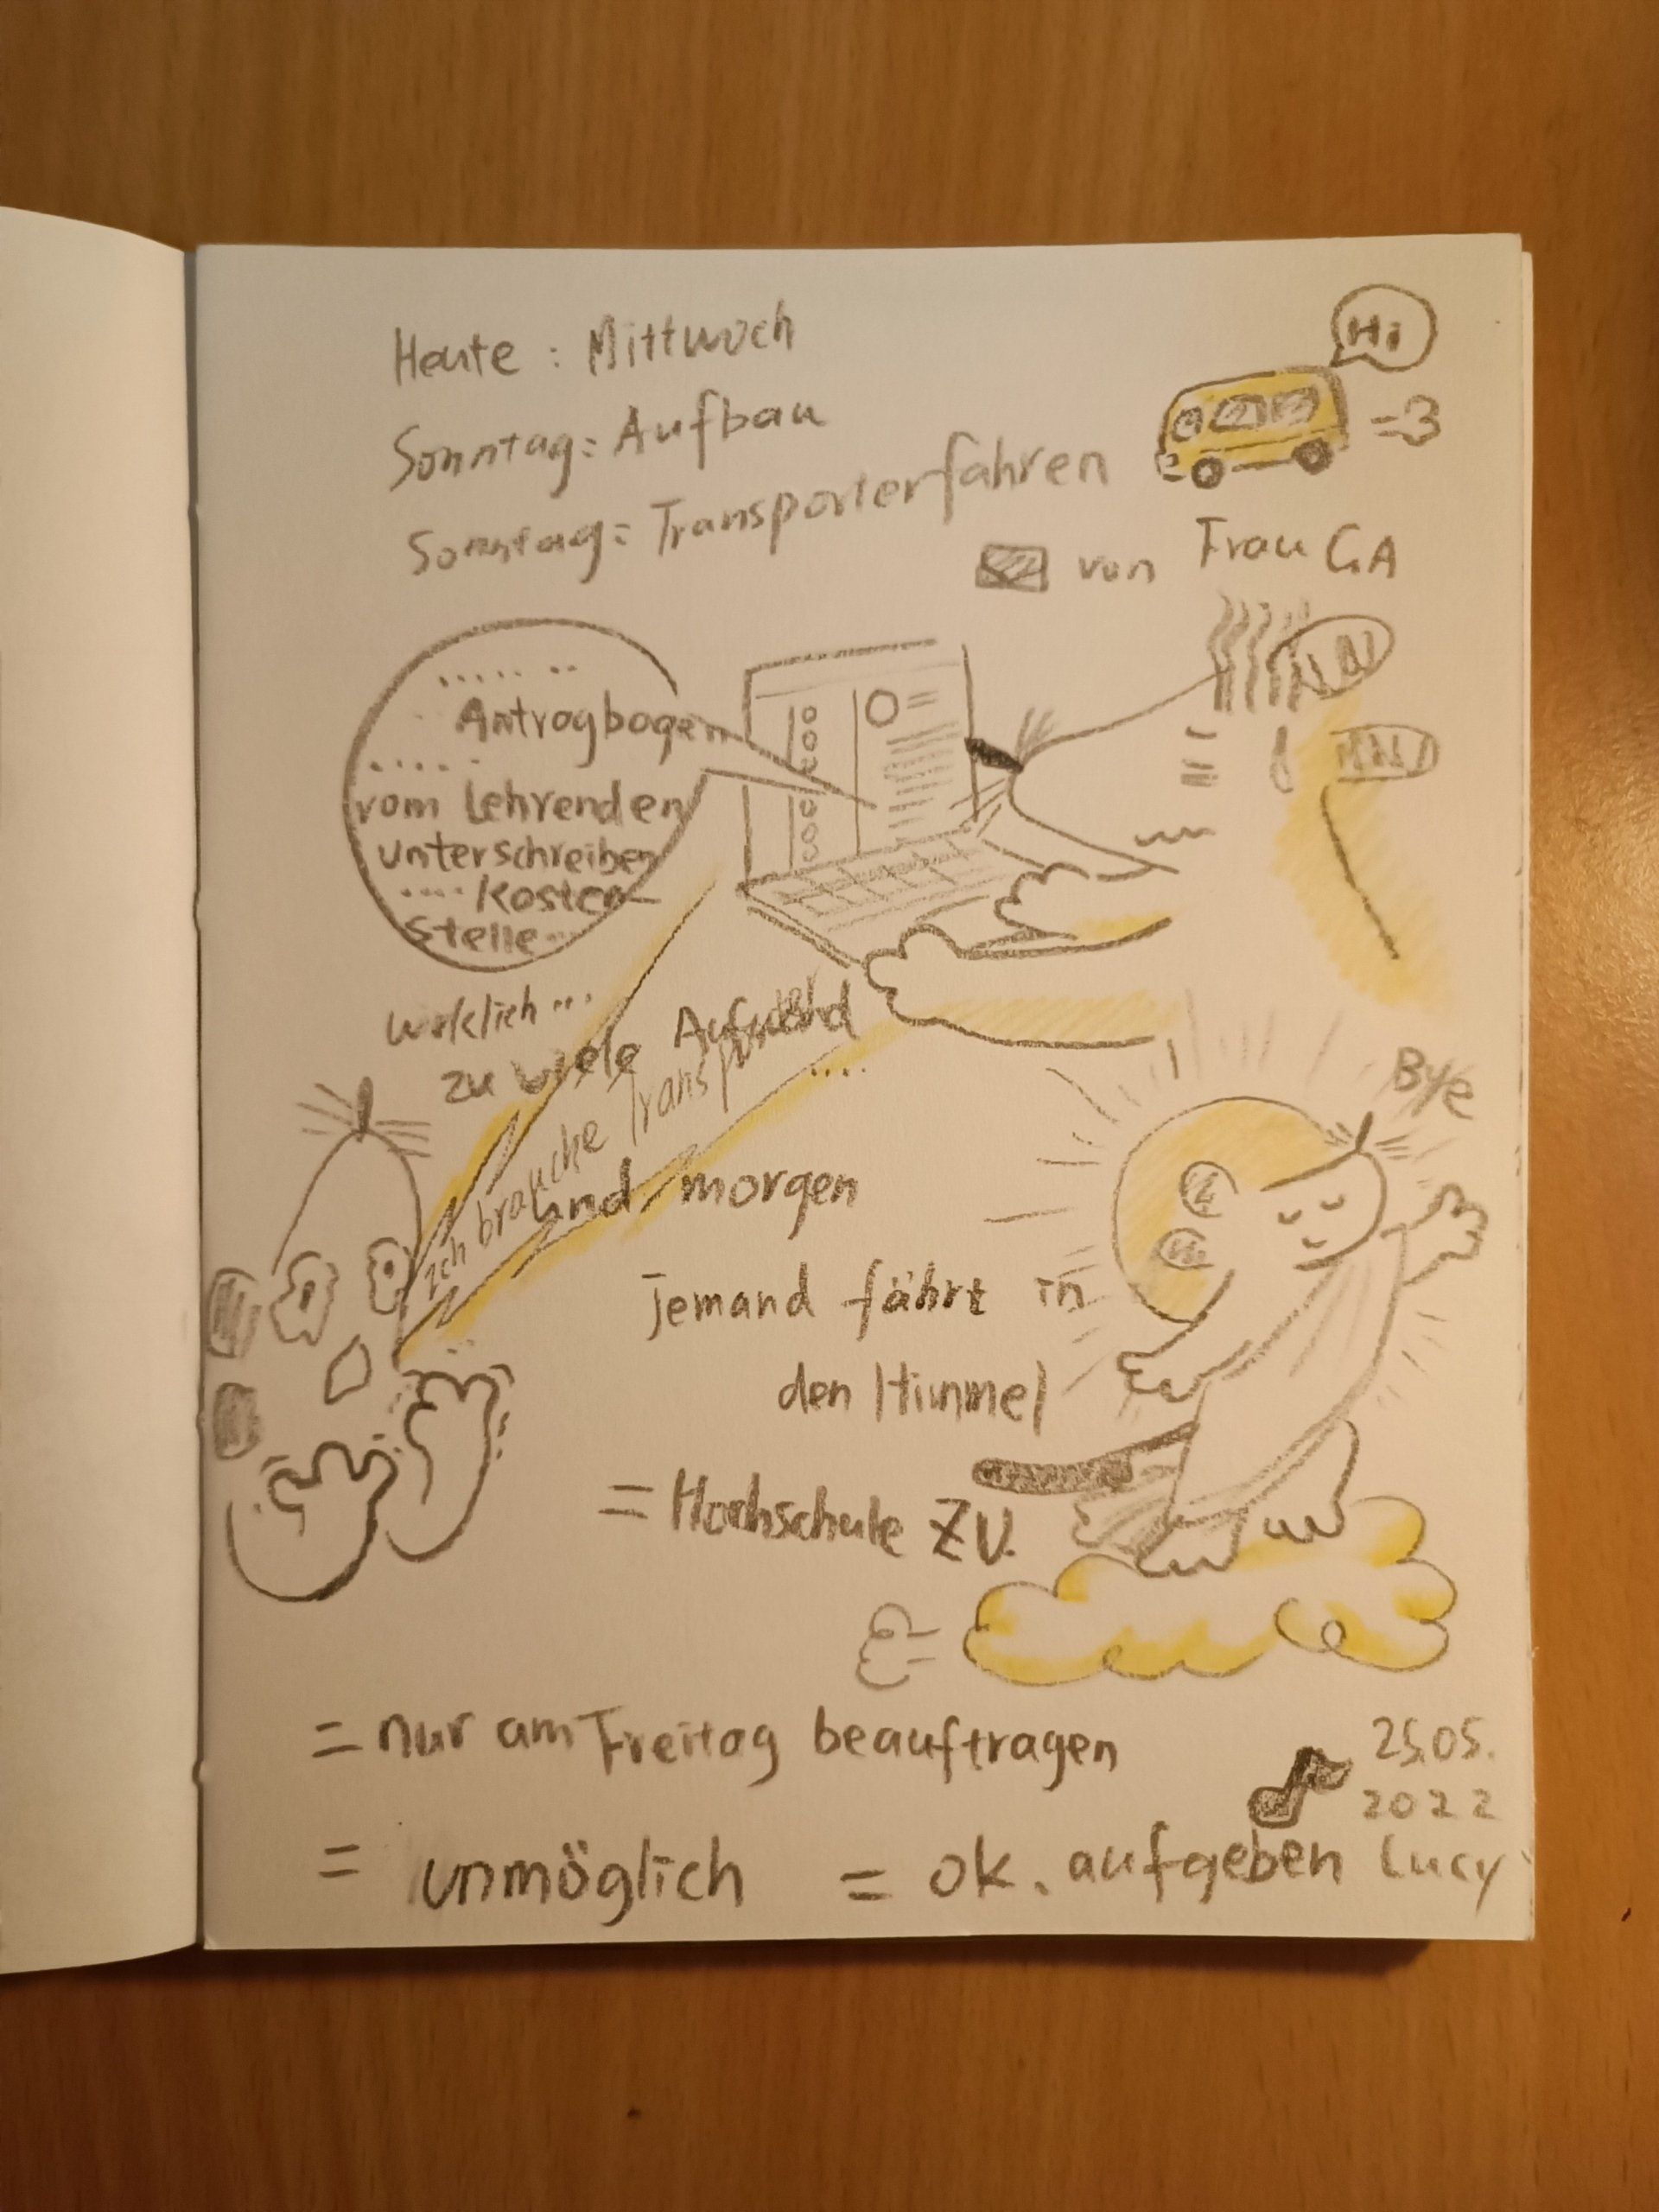 Hi
Heute : Mittwoch
Sonntag: Aufbau
Sonntag: Transporterfahren
=3
von Frau GA
...... ..
Antragbogen
.....
vom Lehrenden
unterschreiben
.... Kosten
Stelle...
wirklich ...
zu viele Aufwand
....
Ich brauche Transporter
und morgen
Bye
jemand fährt in
den Himmel
= Hochschule ZV.
= nur am Freitag beauftragen
25.05.
2022
= unmöglich = ok. aufgeben Lucy